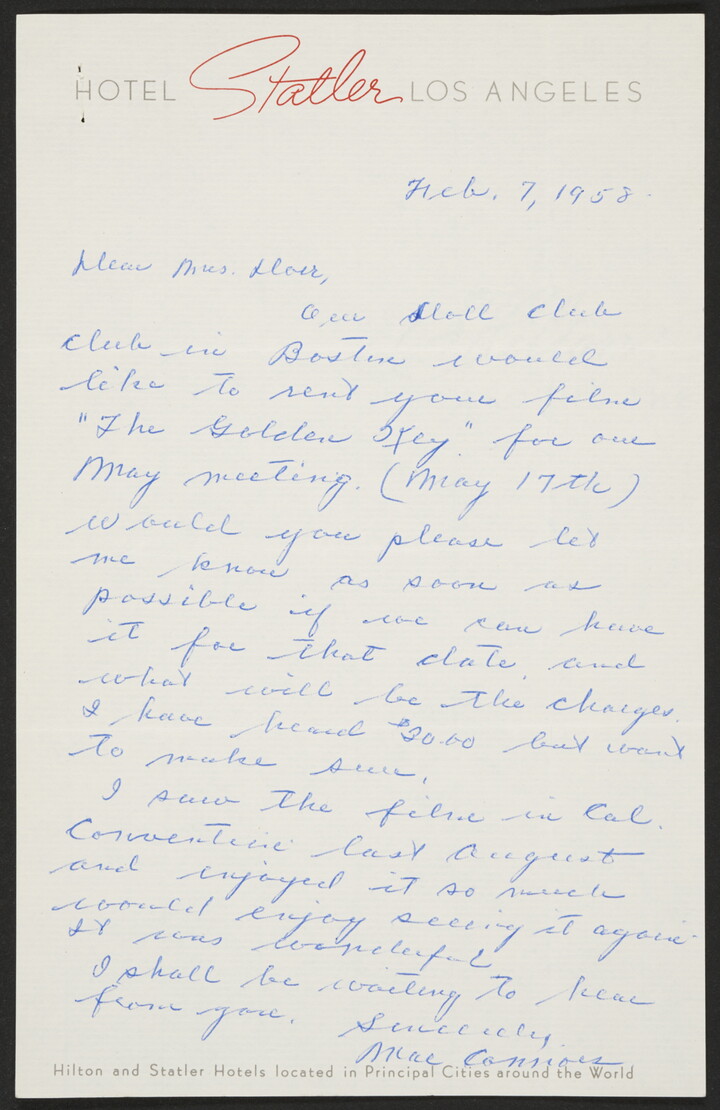 HOTEL Statler LOS ANGELES
Feb. 7, 1958.
Dear Mrs. Dorr,
Our Doll Club
club in Boston would
like to rent your film
"The Golden Key" for our
May meeting. (May 17th)
Would you please let
me know as soon as
possible if we can have
it for that date and
what will be the charges.
I have heard $20.00 but want
to make sure.
I saw the film in Cal.
Convention last August
and enjoyed it so much
would enjoy seeing it again
It was wonderful
I shall be waiting to hear
from you. Sincerely,
Mae
Hilton and Statler Hotels located in Principal Cities around the World